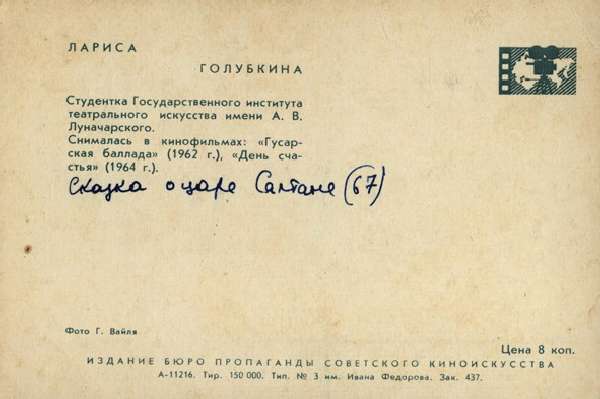 ЛАРИСА
ГОЛУБКИНА
Студентка Государственного института
театрального искусства имени А. В.
Луначарского.
Снималась в кинофильмах: «Гусар-
ская баллада» (1962 г.), «День сча-
стья» (1964 г.).
Сказка о царе Салтане (67)
Фото Г. Вайля
Цена 8 коп.
ИЗДАНИЕ БЮРО ПРОПАГАНДЫ СОВЕТСКОГО КИНОИСКУССТВА
А-11216. Тир. 150 000. Тип. № 3 им. Ивана Федорова. Зак. 437.